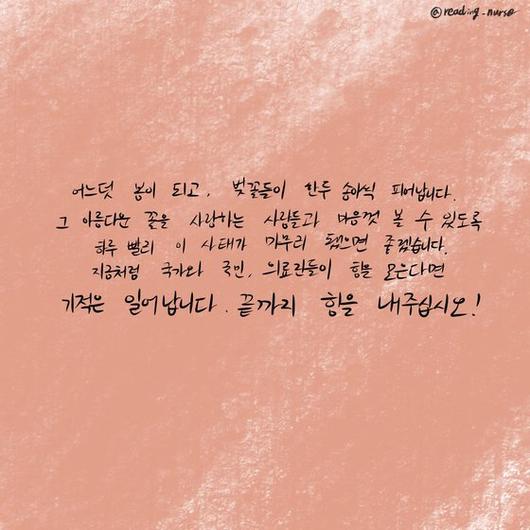 @reading_nurse
어느덧 봄이 되고, 벚꽃들이 한두 송이씩 피어납니다.
그 아름다운 꽃을 사랑하는 사람들과 마음껏 볼 수 있도록
하루 빨리 이 사태가 마무리 됐으면 좋겠습니다.
지금처럼 국가와 국민, 의료진들이 힘을 모은다면
기적은 일어납니다. 끝까지 힘을 내주십시오!